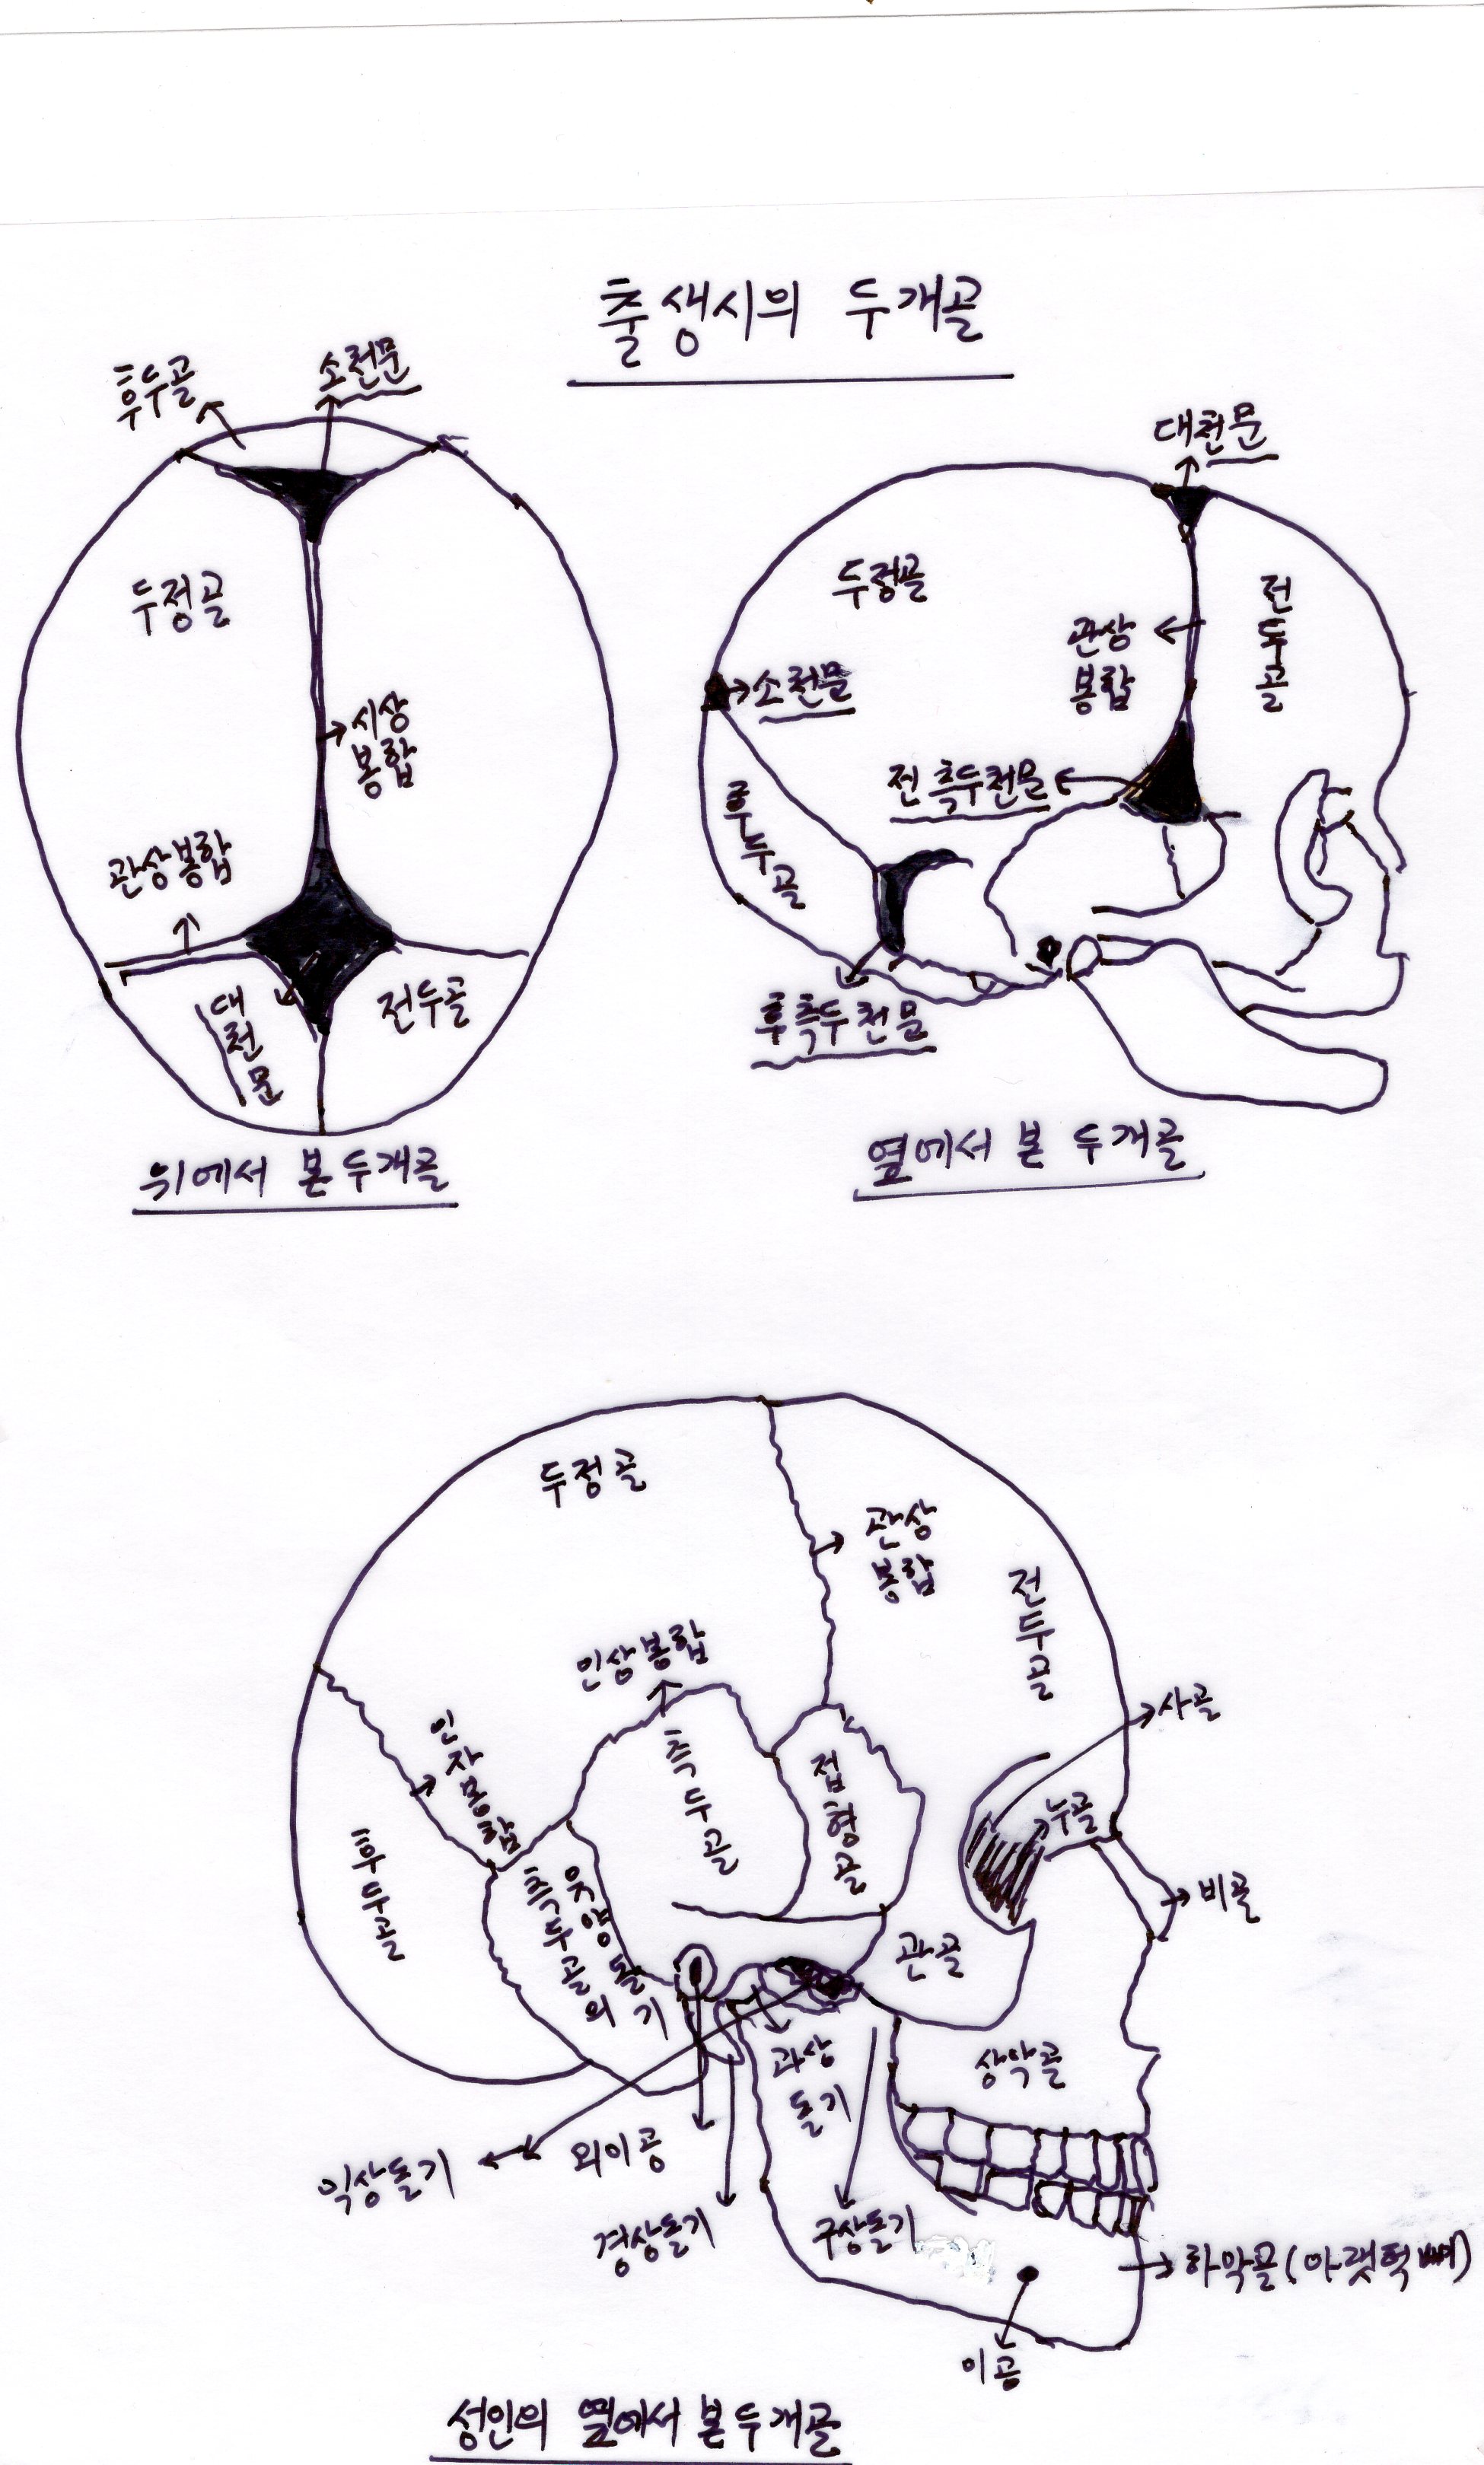 출생시의 두개골
후두골
소천문
두정골
시상
봉합
관상봉합
대
천
문
전두골
위에서 본 두개골
대천문
두정골
관상
봉합
전
두
골
소천문
전측두천문
후
두
골
후측두천문
옆에서 본 두개골
두정골
관상
봉합
전
두
골
인상봉합
사골
인자봉합
측
두
골
접
형
골
누골
후
두
골
유양돌기
측두골의
비골
관골
과상
돌기
상악골
외이공
익상돌기
경상돌기
구상돌기
하악골(아랫턱뼈)
이공
성인의 옆에서 본 두개골